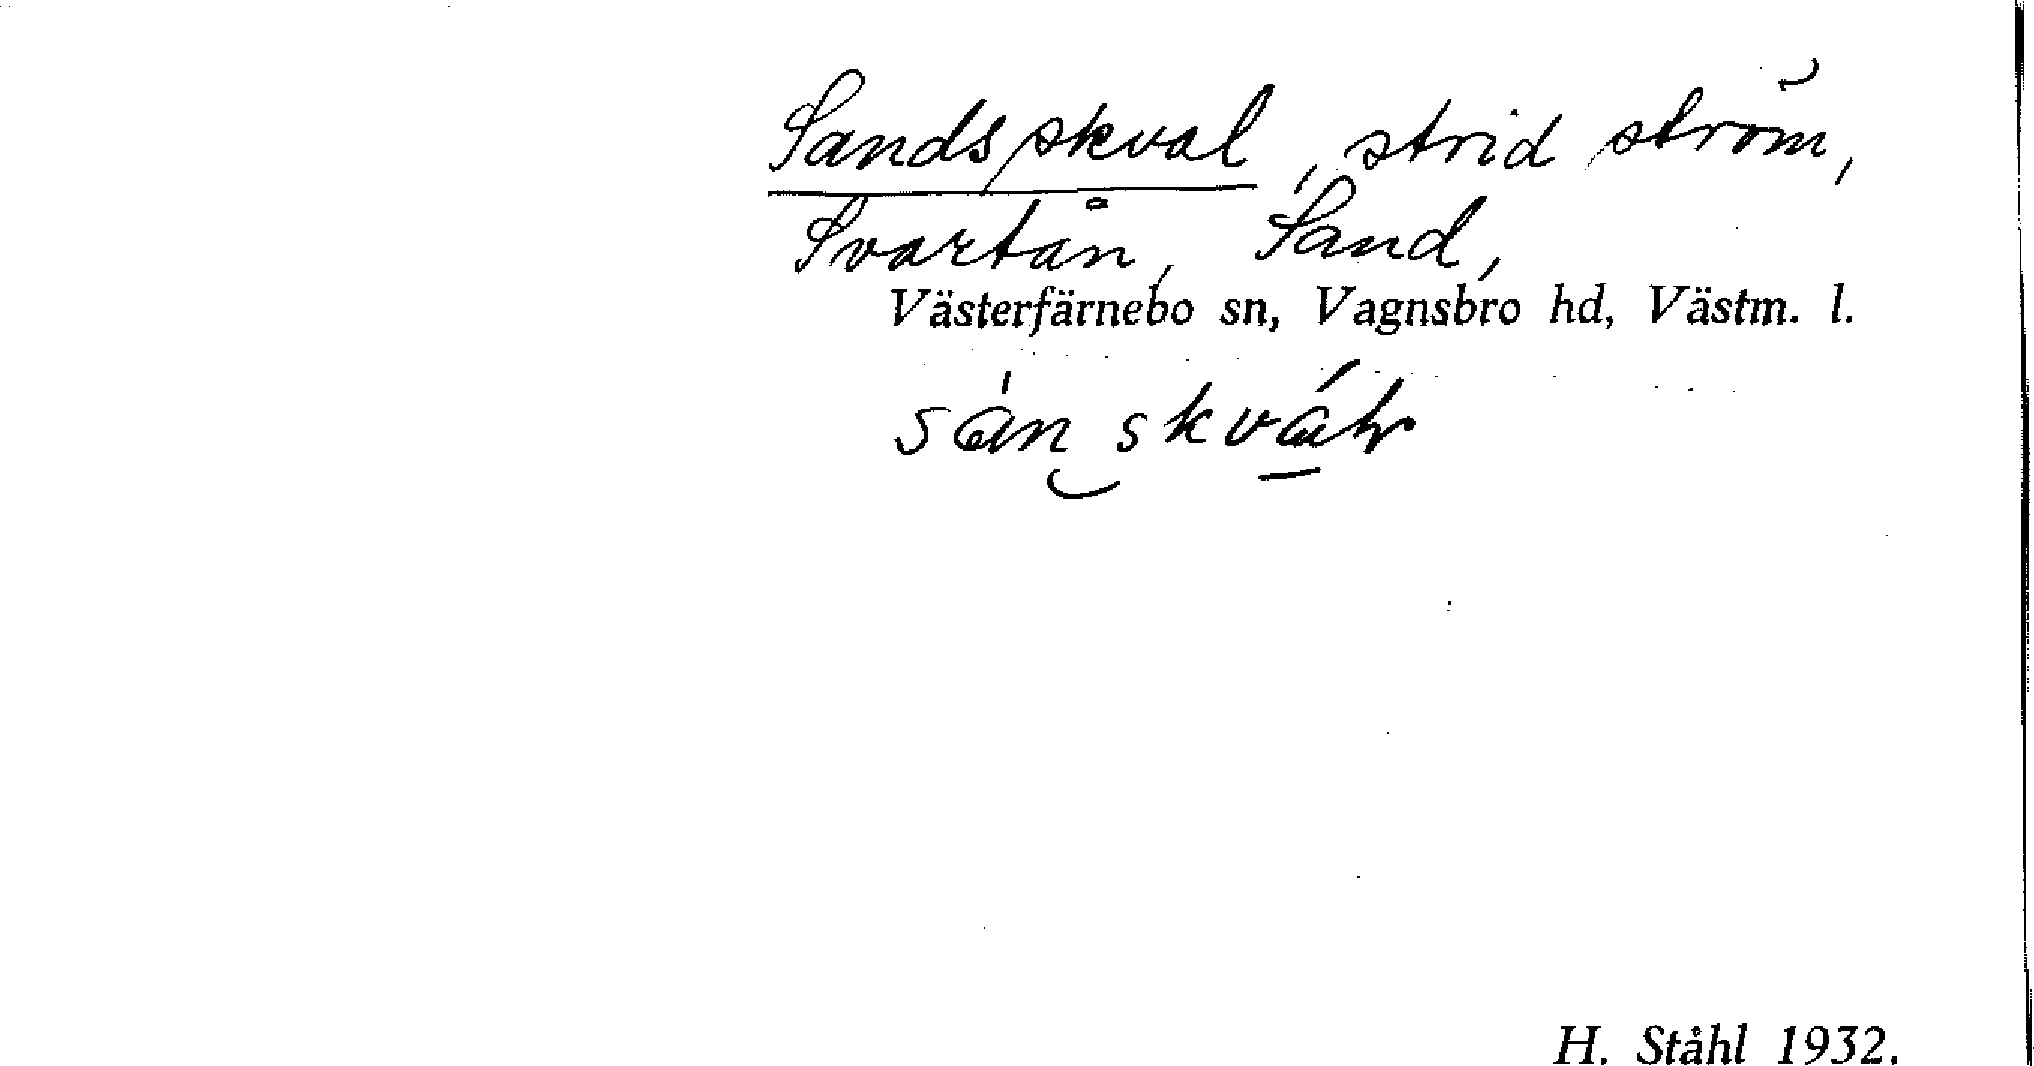 Sandsskval, strid ström,
Svartån, Sand,
Västerfärnebo sn, Vagnsbro hd, Västm. l.
H. Ståhl 1932.